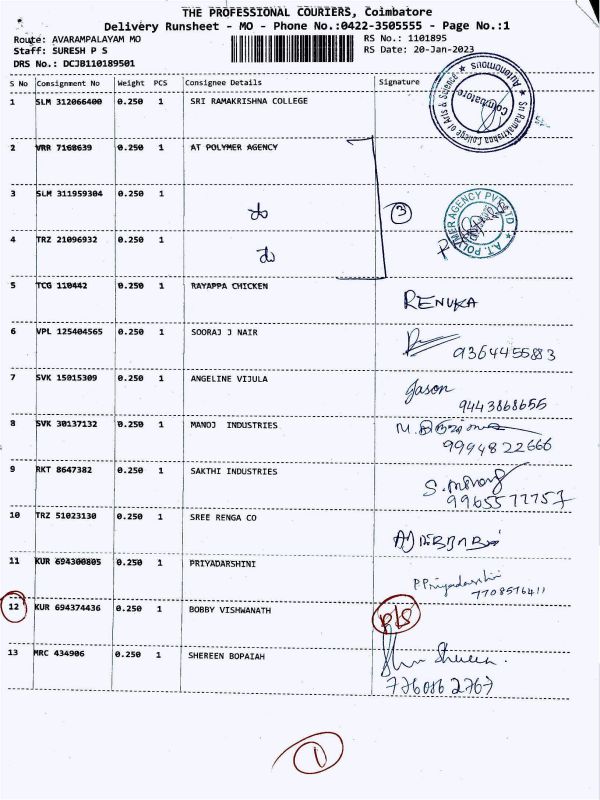 THE PROFESSIONAL COURIERS, Coimbatore
Delivery Runsheet - MO - Phone No.:0422-3505555 - Page No.:1
Route: AVARAMPALAYAM MO RS No.: 1101895
Staff: SURESH P S RS Date: 20-Jan-2023
DRS No.: DCJB110189501
S No Consignment No Weight PCS Consignee Details Signature
1 SLM 312066400 0.250 1 SRI RAMAKRISHNA COLLEGE
Sri Ramakrishna College of Arts & Science
Autonomous
Coimbatore
2 VRR 7168639 0.250 1 AT POLYMER AGENCY
3 SLM 311959304 0.250 1 do
3
A.T. POLYMER AGENCY PVT LTD
4 TRZ 21096932 0.250 1 do
5 TCG 110442 0.250 1 RAYAPPA CHICKEN
RENUKA
6 VPL 125404565 0.250 1 SOORAJ J NAIR
9364455883
7 SVK 15015309 0.250 1 ANGELINE VIJULA
Jason
9443868655
8 SVK 30137132 0.250 1 MANOJ INDUSTRIES
9994822666
9 RKT 8647382 0.250 1 SAKTHI INDUSTRIES
9965577757
10 TRZ 51023130 0.250 1 SREE RENGA CO
11 KUR 694300805 0.250 1 PRIYADARSHINI
P Priyadarshini
7708576411
12 KUR 694374436 0.250 1 BOBBY VISHWANATH
D/S
13 MRC 434906 0.250 1 SHEREEN BOPAIAH
Shereen.
7760862767
1